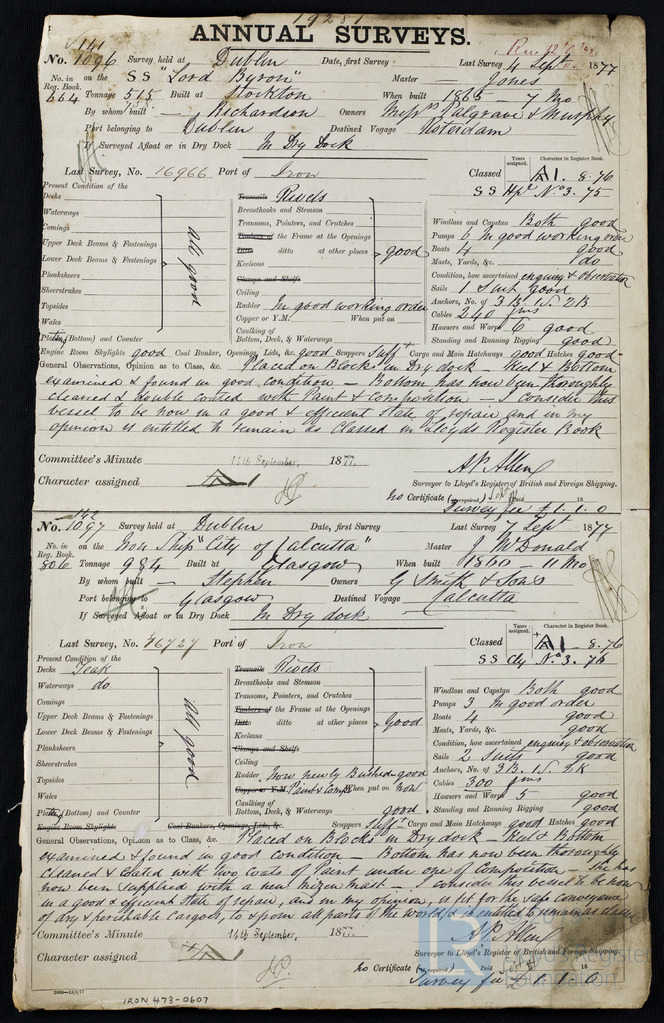 19281
ANNUAL SURVEYS.
141
No. 1096 Survey held at Dublin Date, first Survey Last Survey 4 Sept 1877
No. in Reg. Book. 664 on the SS "Lord Byron" Master Jones
Tonnage 515 Built at Stockton When built 1865 - 7 Mo
By whom built - Richardson Owners Messrs Palgrave & Murphy
Port belonging to Dublin Destined Voyage Rotterdam
If Surveyed Afloat or in Dry Dock In Dry Dock
Last Survey, No. 16966 Port of Iron Classed Years assigned. Character in Register Book. A1 8.76
SS No.3. 75
Present Condition of the
Decks
Waterways
Comings
Upper Deck Beams & Fastenings
Lower Deck Beams & Fastenings
Planksheers
Sheerstrakes
Topsides
Wales
Plating (Bottom) and Counter
All good
Treenails Rivets
Breasthooks and Stemson
Transoms, Pointers, and Crutches
Timbers of the Frame at the Openings
Ditto ditto at other places
Keelsons
Clamps and Shelfs
Ceiling
good
Rudder In good working order
Copper or Y.M. When put on
Caulking of Bottom, Deck, & Waterways
Windlass and Capstan Both good
Pumps 6 In good working order
Boats 4 good
Masts, Yards, &c. do
Condition, how ascertained enquiry & observation
Sails 1 Suit good
Anchors, No. of 3 B. 1 S. 2 K
Cables 240 fms
Hawsers and Warps 6 good
Standing and Running Rigging good
Engine Room Skylights good Coal Bunker, Openings, Lids, &c. good Scuppers Sufft Cargo and Main Hatchways good Hatches good
General Observations, Opinion as to Class, &c. Placed on Blocks in Dry dock - Keel & Bottom
examined & found in good condition - Bottom has now been thoroughly
cleaned & double coated with Paint & Composition - I consider this
vessel to be now in a good & efficient state of repair and in my
opinion is entitled to remain as Classed in Lloyds Register Book
Committee's Minute 14th September, 1877.
Character assigned A1
A.P. Allen
Surveyor to Lloyd's Register of British and Foreign Shipping.
No Certificate (if required) Paid 18
Survey fee £1.1.0
142
No. 1097 Survey held at Dublin Date, first Survey Last Survey 7 Sept 1877
No. in Reg. Book. 306 on the Iron Ship "City of Calcutta" Master J. McDonald
Tonnage 984 Built at Glasgow When built 1860 - 11 Mo
By whom built - Stephen Owners G Smith & Sons
Port belonging to Glasgow Destined Voyage Calcutta
If Surveyed Afloat or in Dry Dock In Dry dock
Last Survey, No. 46727 Port of Iron Classed Years assigned. Character in Register Book. A1 8.76
SS Cly No.3. 76
Present Condition of the
Decks Teak
Waterways do
Comings
Upper Deck Beams & Fastenings
Lower Deck Beams & Fastenings
Planksheers
Sheerstrakes
Topsides
Wales
Plating (Bottom) and Counter
All good
Treenails Rivets
Breasthooks and Stemson
Transoms, Pointers, and Crutches
Timbers of the Frame at the Openings
Ditto ditto at other places
Keelsons
Clamps and Shelfs
Ceiling
good
Rudder, Now newly Bushed - good
Copper or Y.M. Paint & Comp When put on now
Caulking of Bottom, Deck, & Waterways good
Windlass and Capstan Both good
Pumps 3 In good order
Boats 4 good
Masts, Yards, &c. good
Condition, how ascertained enquiry & observation
Sails 2 Suits good
Anchors, No. of 3 B. 1 S. 2 K
Cables 300 fms
Hawsers and Warps 5 good
Standing and Running Rigging good
Engine Room Skylights Coal Bunkers, Openings, Lids, &c. Scuppers Sufft Cargo and Main Hatchways good Hatches good
General Observations, Opinion as to Class, &c. Placed on Blocks in Dry dock - Keel & Bottom
examined & found in good condition - Bottom has now been thoroughly
cleaned & coated with two coats of Paint under one of Composition - She has
now been supplied with a new mizen mast - I consider this vessel to be now
in a good & efficient state of repair, and in my opinion, is fit for the safe conveyance
of dry & perishable cargoes, to & from all parts of the world & is entitled to remain as classed
Committee's Minute 14th September, 1877.
Character assigned A1
A.P. Allen
Surveyor to Lloyd's Register of British and Foreign Shipping.
No Certificate (if required) Paid 18
Survey fee £1.1.0
2000-13/3/77
IRON 473-0607
LR
Lloyd's Register
Foundation